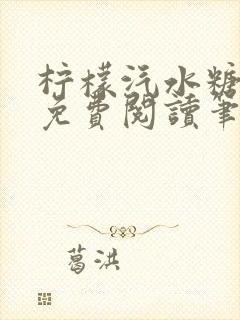 柠檬汽水糖
免費閱讀筆
葛洪